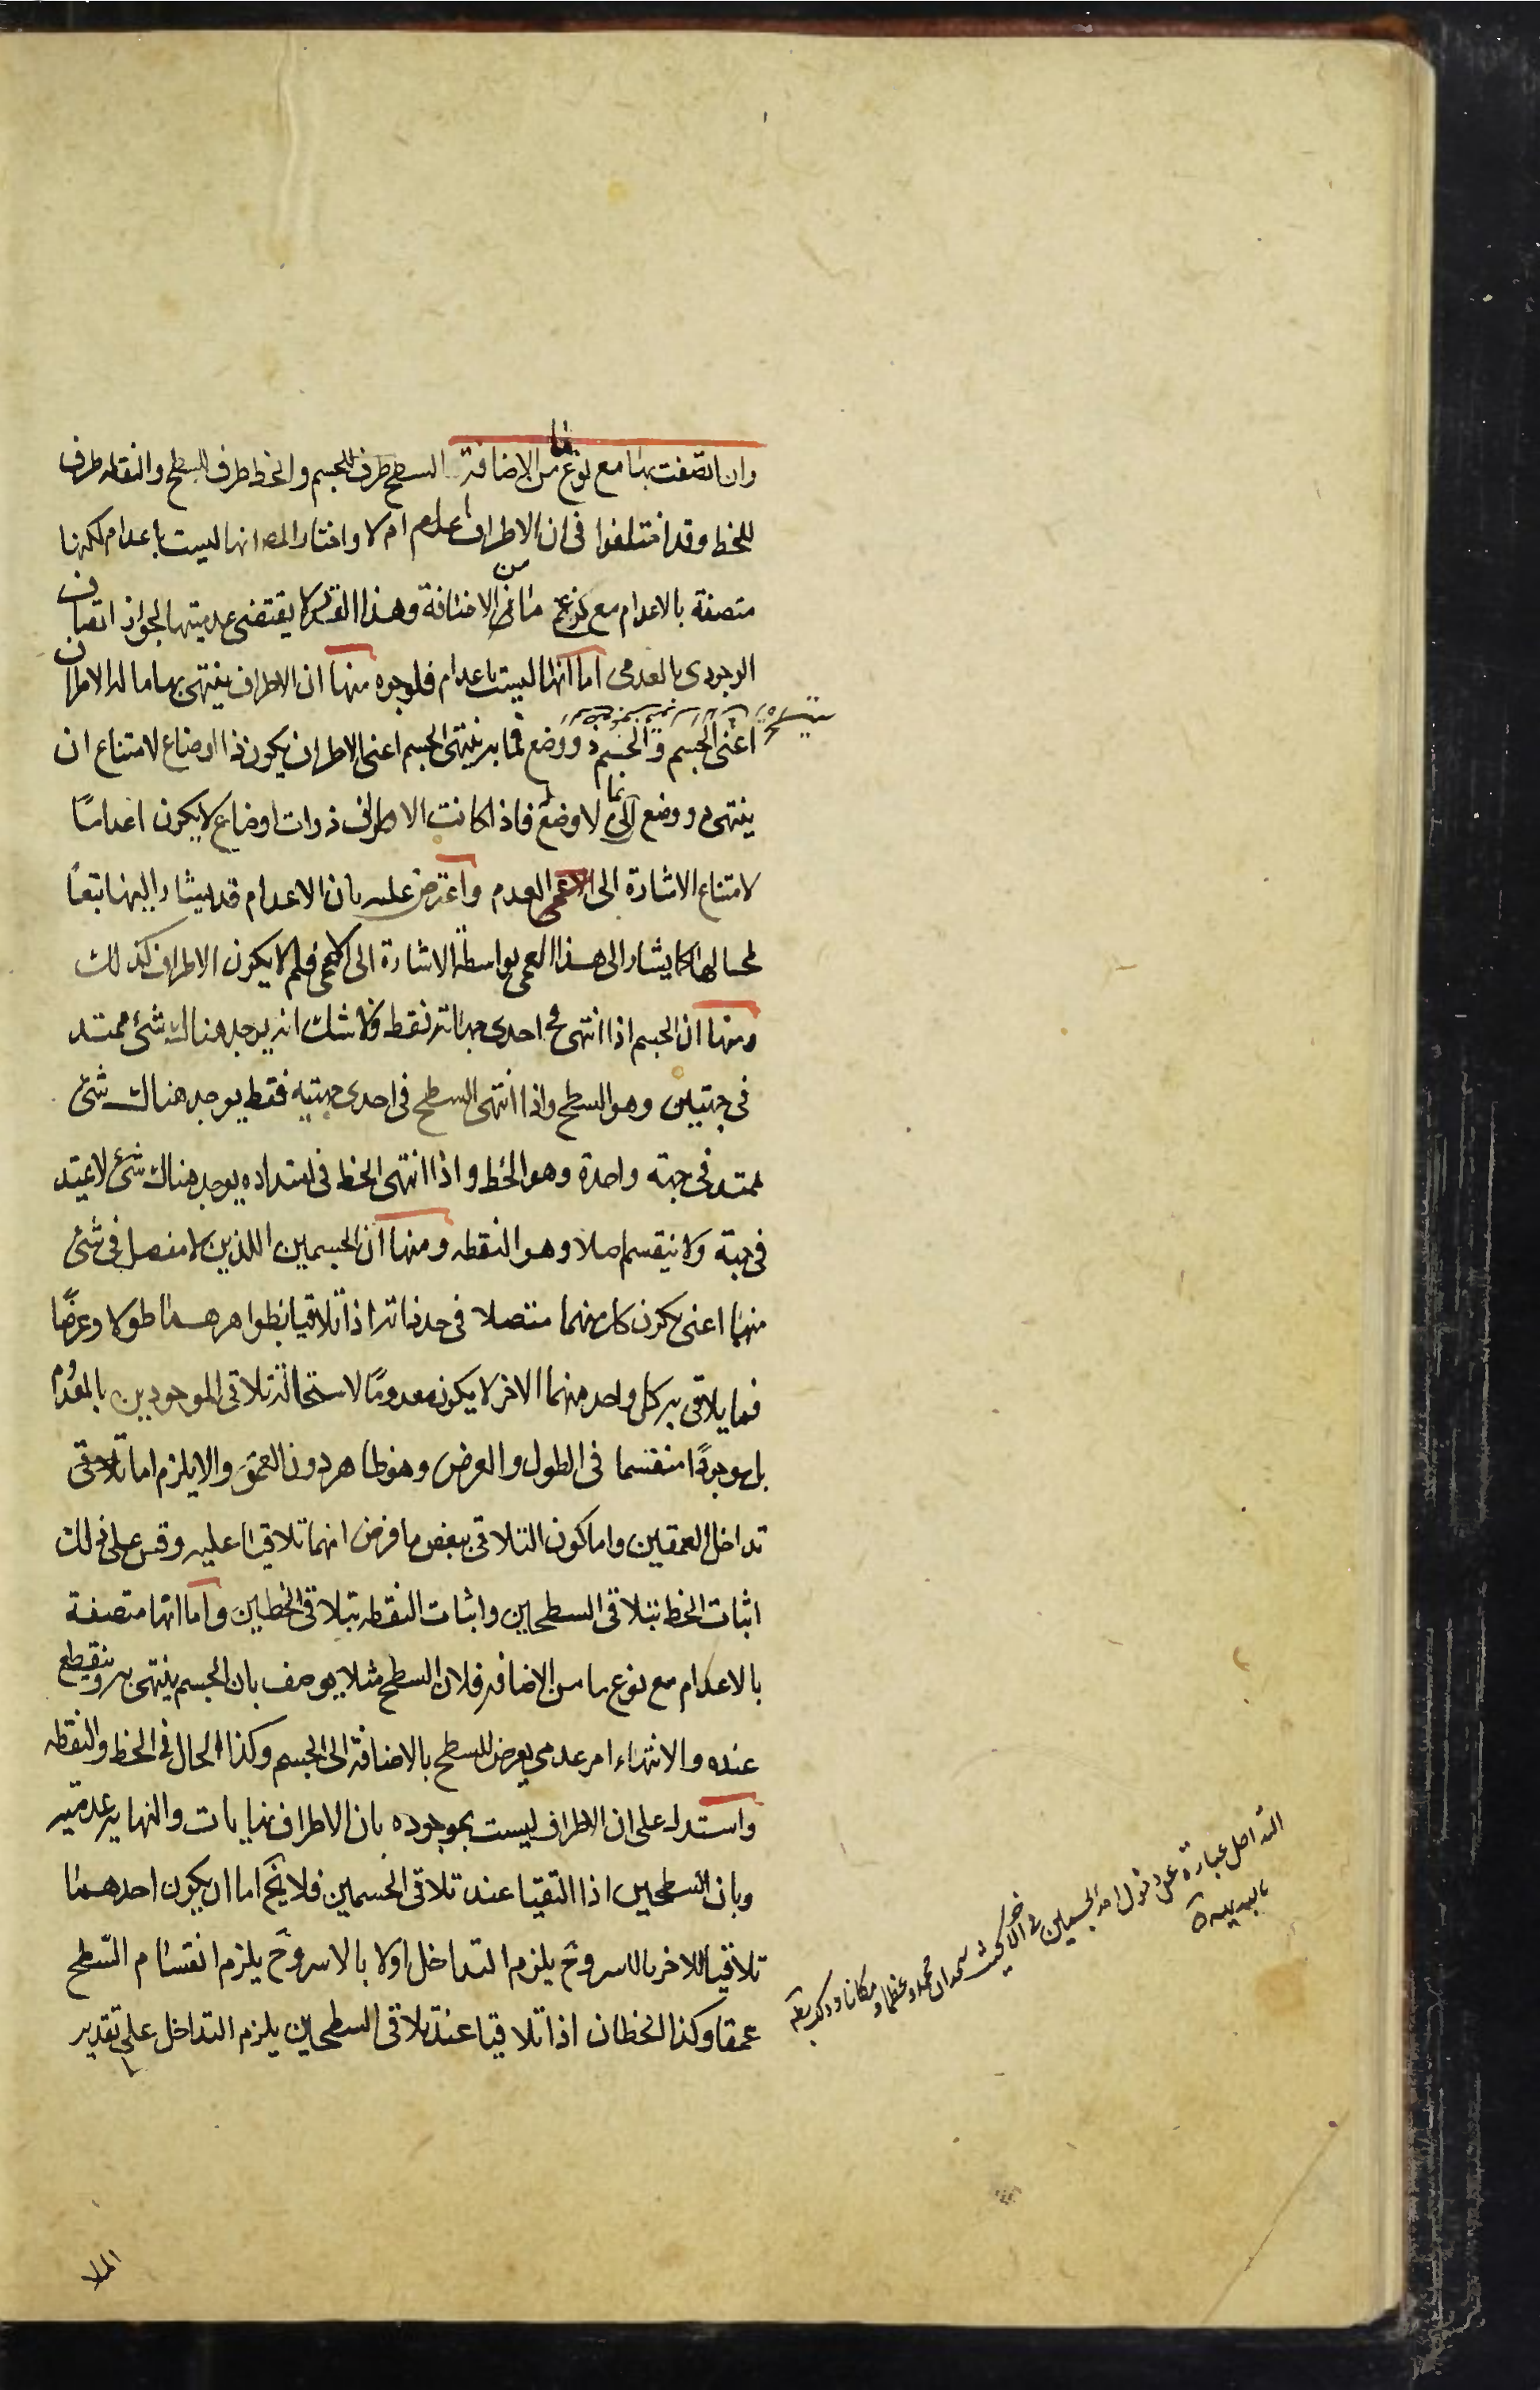 وان اتصفت بها مع نوع ما من الاضافة السطح طرف للجسم والخط طرف للسطح والنقطه طرف
للخط وقد اختلفوا فى ان الاطراف اعدام ام لا واختار المص انها ليست باعدام لكنها
متصفة بالاعدام مع نوع ما من الاضافة وهذا القدر لا يقتضى عدميتها لجواز اتصاف
الوجودى بالعدمى اما انها ليست باعدام فلوجوه منها ان الاطراف ينتهى بها ماله الاطراف
اعنى الجسم والجسم ذو وضع فما به ينتهى الجسم اعنى الاطراف يكون ذا اوضاع لامتناع ان
ينتهى ذو وضع بما لا وضع له فاذا كانت الاطراف ذوات اوضاع لا يكون اعدامًا
لامتناع الاشارة الى العدم واعترض عليه بان الاعدام قد يشار اليها تبعًا
لمحالها كما يشار الى هذا العمى بواسطة الاشارة الى الاعمى فلم لا يكون الاطراف كذلك
ومنها ان الجسم اذا انتهى فى احدى جهاته فقط فلا شك انه يوجد هناك شئ ممتد
فى جهتين وهو السطح واذا انتهى السطح فى احدى جهتيه فقط يوجد هناك شئ
ممتد فى جهة واحدة وهو الخط واذا انتهى الخط فى امتداده يوجد هناك شئ لا يمتد
فى جهة ولا ينقسم اصلا وهو النقطه ومنها ان الجسمين اللذين لا مفصل فى شئ
منهما اعنى يكون كل منهما متصلا فى حد ذاته اذا تلاقيا بظواهرهما طولا وعرضًا
فما يلاقى به كل واحد منهما الاخر لا يكون معدومًا لاستحالة تلاقى الموجودين بالمعدوم
بل موجودًا منقسما فى الطول والعرض وهو ظاهر دون العمق والا يلزم اما
تداخل العمقين واما كون التلاقى ببعض ما فرض انهما تلاقيا عليه وقس على ذلك
اثبات الخط بتلاقى السطحين واثبات النقطه بتلاقى الخطين واما انها متصفة
بالاعدام مع نوع ما من الاضافه فلان السطح مثلا يوصف بان الجسم ينتهى به وينقطع
عنده والانتهاء امر عدمى يعرض للسطح بالاضافة الى الجسم وكذا الحال فى الخط والنقطه
واستدل على ان الاطراف ليست بموجوده بان الاطراف نهايات والنهايه عدميه
وبان السطحين اذا التقيا عند تلاقى الجسمين فلا يخ اما ان يكون احدهما
تلاقيا للاخر بالاسر وح يلزم التداخل اولا بالاسر وح يلزم انقسام السطح
عمقا وكذا الخطان اذا تلاقيا عند تلاقى السطحين يلزم التداخل على تقدير
التداخل عبارة عن دخول احد الجسمين فى الاخر بحيث يتحدان حجما ومكانا
بالبديهة
الملا